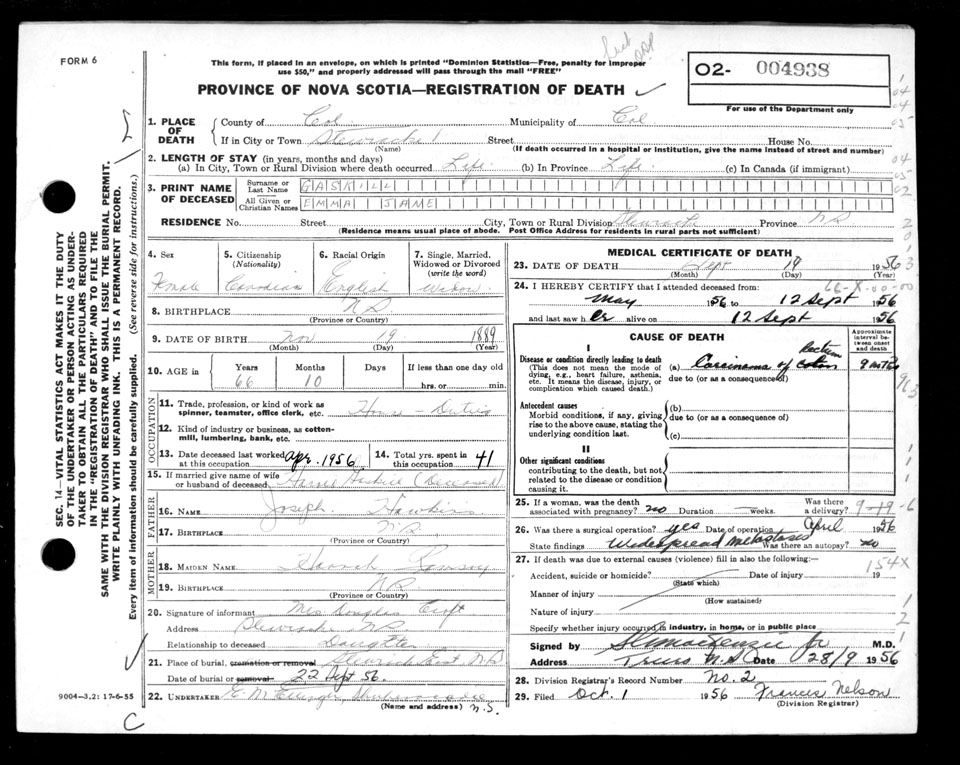 FORM 6
This form, if placed in an envelope, on which is printed "Dominion Statistics—Free, penalty for improper
use $50," and properly addressed will pass through the mail "FREE"
02- 004938
For use of the Department only
PROVINCE OF NOVA SCOTIA—REGISTRATION OF DEATH
1. PLACE OF DEATH
County of Col Municipality of Col
If in City or Town Street House No.
(Name) (If death occurred in a hospital or institution, give the name instead of street and number)
2. LENGTH OF STAY (in years, months and days)
(a) In City, Town or Rural Division where death occurred Life (b) In Province Life (c) In Canada (if immigrant)
3. PRINT NAME OF DECEASED
Surname or Last Name GASKILL
All Given or Christian Names EMMA JANE
RESIDENCE No. Street City, Town or Rural Division Province NS
(Residence means usual place of abode. Post Office Address for residents in rural parts not sufficient)
4. Sex
Female
5. Citizenship (Nationality)
Canadian
6. Racial Origin
English
7. Single, Married, Widowed or Divorced (write the word)
Widow
8. BIRTHPLACE NS
(Province or Country)
9. DATE OF BIRTH Nov 19 1889
(Month) (Day) (Year)
10. AGE in Years Months Days If less than one day old
66 10 hrs. or min.
OCCUPATION
11. Trade, profession or kind of work as spinner, teamster, office clerk, etc. House-Duties
12. Kind of industry or business, as cotton-mill, lumbering, bank, etc.
13. Date deceased last worked at this occupation Apr. 1956
14. Total yrs. spent in this occupation 41
15. If married give name of wife or husband of deceased (Deceased)
FATHER
16. NAME Joseph Hawkins
17. BIRTHPLACE NS
(Province or Country)
MOTHER
18. MAIDEN NAME
19. BIRTHPLACE NS
(Province or Country)
20. Signature of informant Mrs Douglas Croft
Address NS
Relationship to deceased Daughter
21. Place of burial, cremation or removal East, NS
Date of burial or removal 22 Sept 56.
22. UNDERTAKER
(Name and address) N.S.
MEDICAL CERTIFICATE OF DEATH
23. DATE OF DEATH Sept 19 1956
(Month) (Day) (Year)
24. I HEREBY CERTIFY that I attended deceased from:
May 1956 to 12 Sept 1956
and last saw her alive on 12 Sept 1956
CAUSE OF DEATH
Approximate interval between onset and death
I
Disease or condition directly leading to death
(This does not mean the mode of dying, e.g., heart failure, asthenia, etc. It means the disease, injury, or complication which caused death.)
(a) Carcinoma of colon Rectum
due to (or as a consequence of)
Antecedent causes
Morbid conditions, if any, giving rise to the above cause, stating the underlying condition last.
(b)
due to (or as a consequence of)
(c)
II
Other significant conditions
contributing to the death, but not related to the disease or condition causing it.
25. If a woman, was the death associated with pregnancy? no Duration weeks. Was there a delivery?
26. Was there a surgical operation? yes Date of operation April 1956
State findings Widespread metastases Was there an autopsy? no
27. If death was due to external causes (violence) fill in also the following:
154X
Accident, suicide or homicide? Date of injury 19
(State which)
Manner of injury
(How sustained)
Nature of injury
Specify whether injury occurred in industry, in home, or in public place
Signed by M.D.
Address Truro N.S. Date 28/9 1956
28. Division Registrar's Record Number No. 2
29. Filed Oct. 1 1956 Frances Nelson
(Division Registrar)
SEC. 14—VITAL STATISTICS ACT MAKES IT THE DUTY
OF THE UNDERTAKER OR PERSON ACTING AS UNDER-
TAKER TO OBTAIN ALL THE PARTICULARS REQUIRED
IN THE "REGISTRATION OF DEATH" AND TO FILE THE
SAME WITH THE DIVISION REGISTRAR WHO SHALL ISSUE THE BURIAL PERMIT.
WRITE PLAINLY WITH UNFADING INK. THIS IS A PERMANENT RECORD.
Every item of information should be carefully supplied. (See reverse side for instructions.)
9004-3.2: 17-6-55